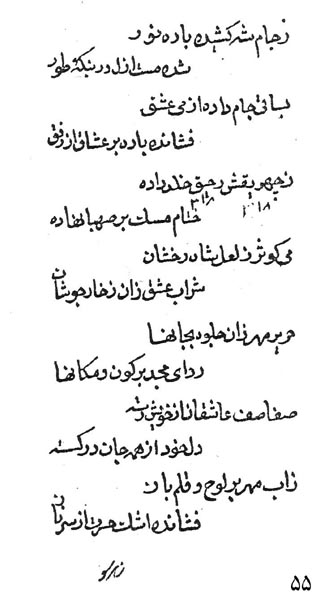 ز جام شه کشیده باده نور
شده مست ازل در بنکهٔ طور
بساقی جام داده از می عشق
فشانده باده بر عشاق از رفق
ز چهر یقش رحیق خلد داده
۳۱۸ ۳۱۸
ختام مسک بر صهبا نهاده
می کوثر ز لعل شاه رخشان
شراب عشق زان زخار جوشان
حریر مهر زان جلوه بجانها
ردای مجد بر کون و مکانها
صفاصف عاشقانه از خویش رسته
دل خود از همه جان در گسسته
ز آب مهر بر لوح و قلم باز
فشانده اشک حسرت از سر
۵۵